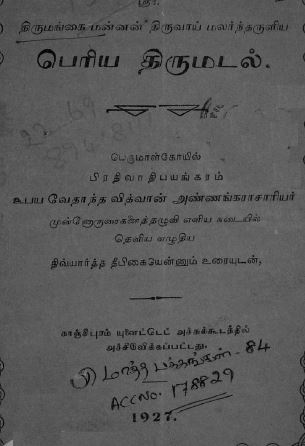 ஸ்ரீ:
திருமங்கை மன்னன் திருவாய் மலர்ந்தருளிய
பெரிய திருமடல்.
பெருமாள்கோயில்
பிரதிவாதிபயங்கரம்
உபய வேதாந்த வித்வான் அண்ணங்கராசாரியர்
முன்னோருரைகளைத்தழுவி எளிய நடையில்
தெளிய எழுதிய
திவ்யார்த்த தீபிகையென்னும் உரையுடன்,
காஞ்சீபுரம் யுனைட்டெட் அச்சுக்கூடத்தில்
அச்சிடுவிக்கப்பட்டது.
மொத்த பக்கங்கள் - 84
ACC No. 178829
1927.